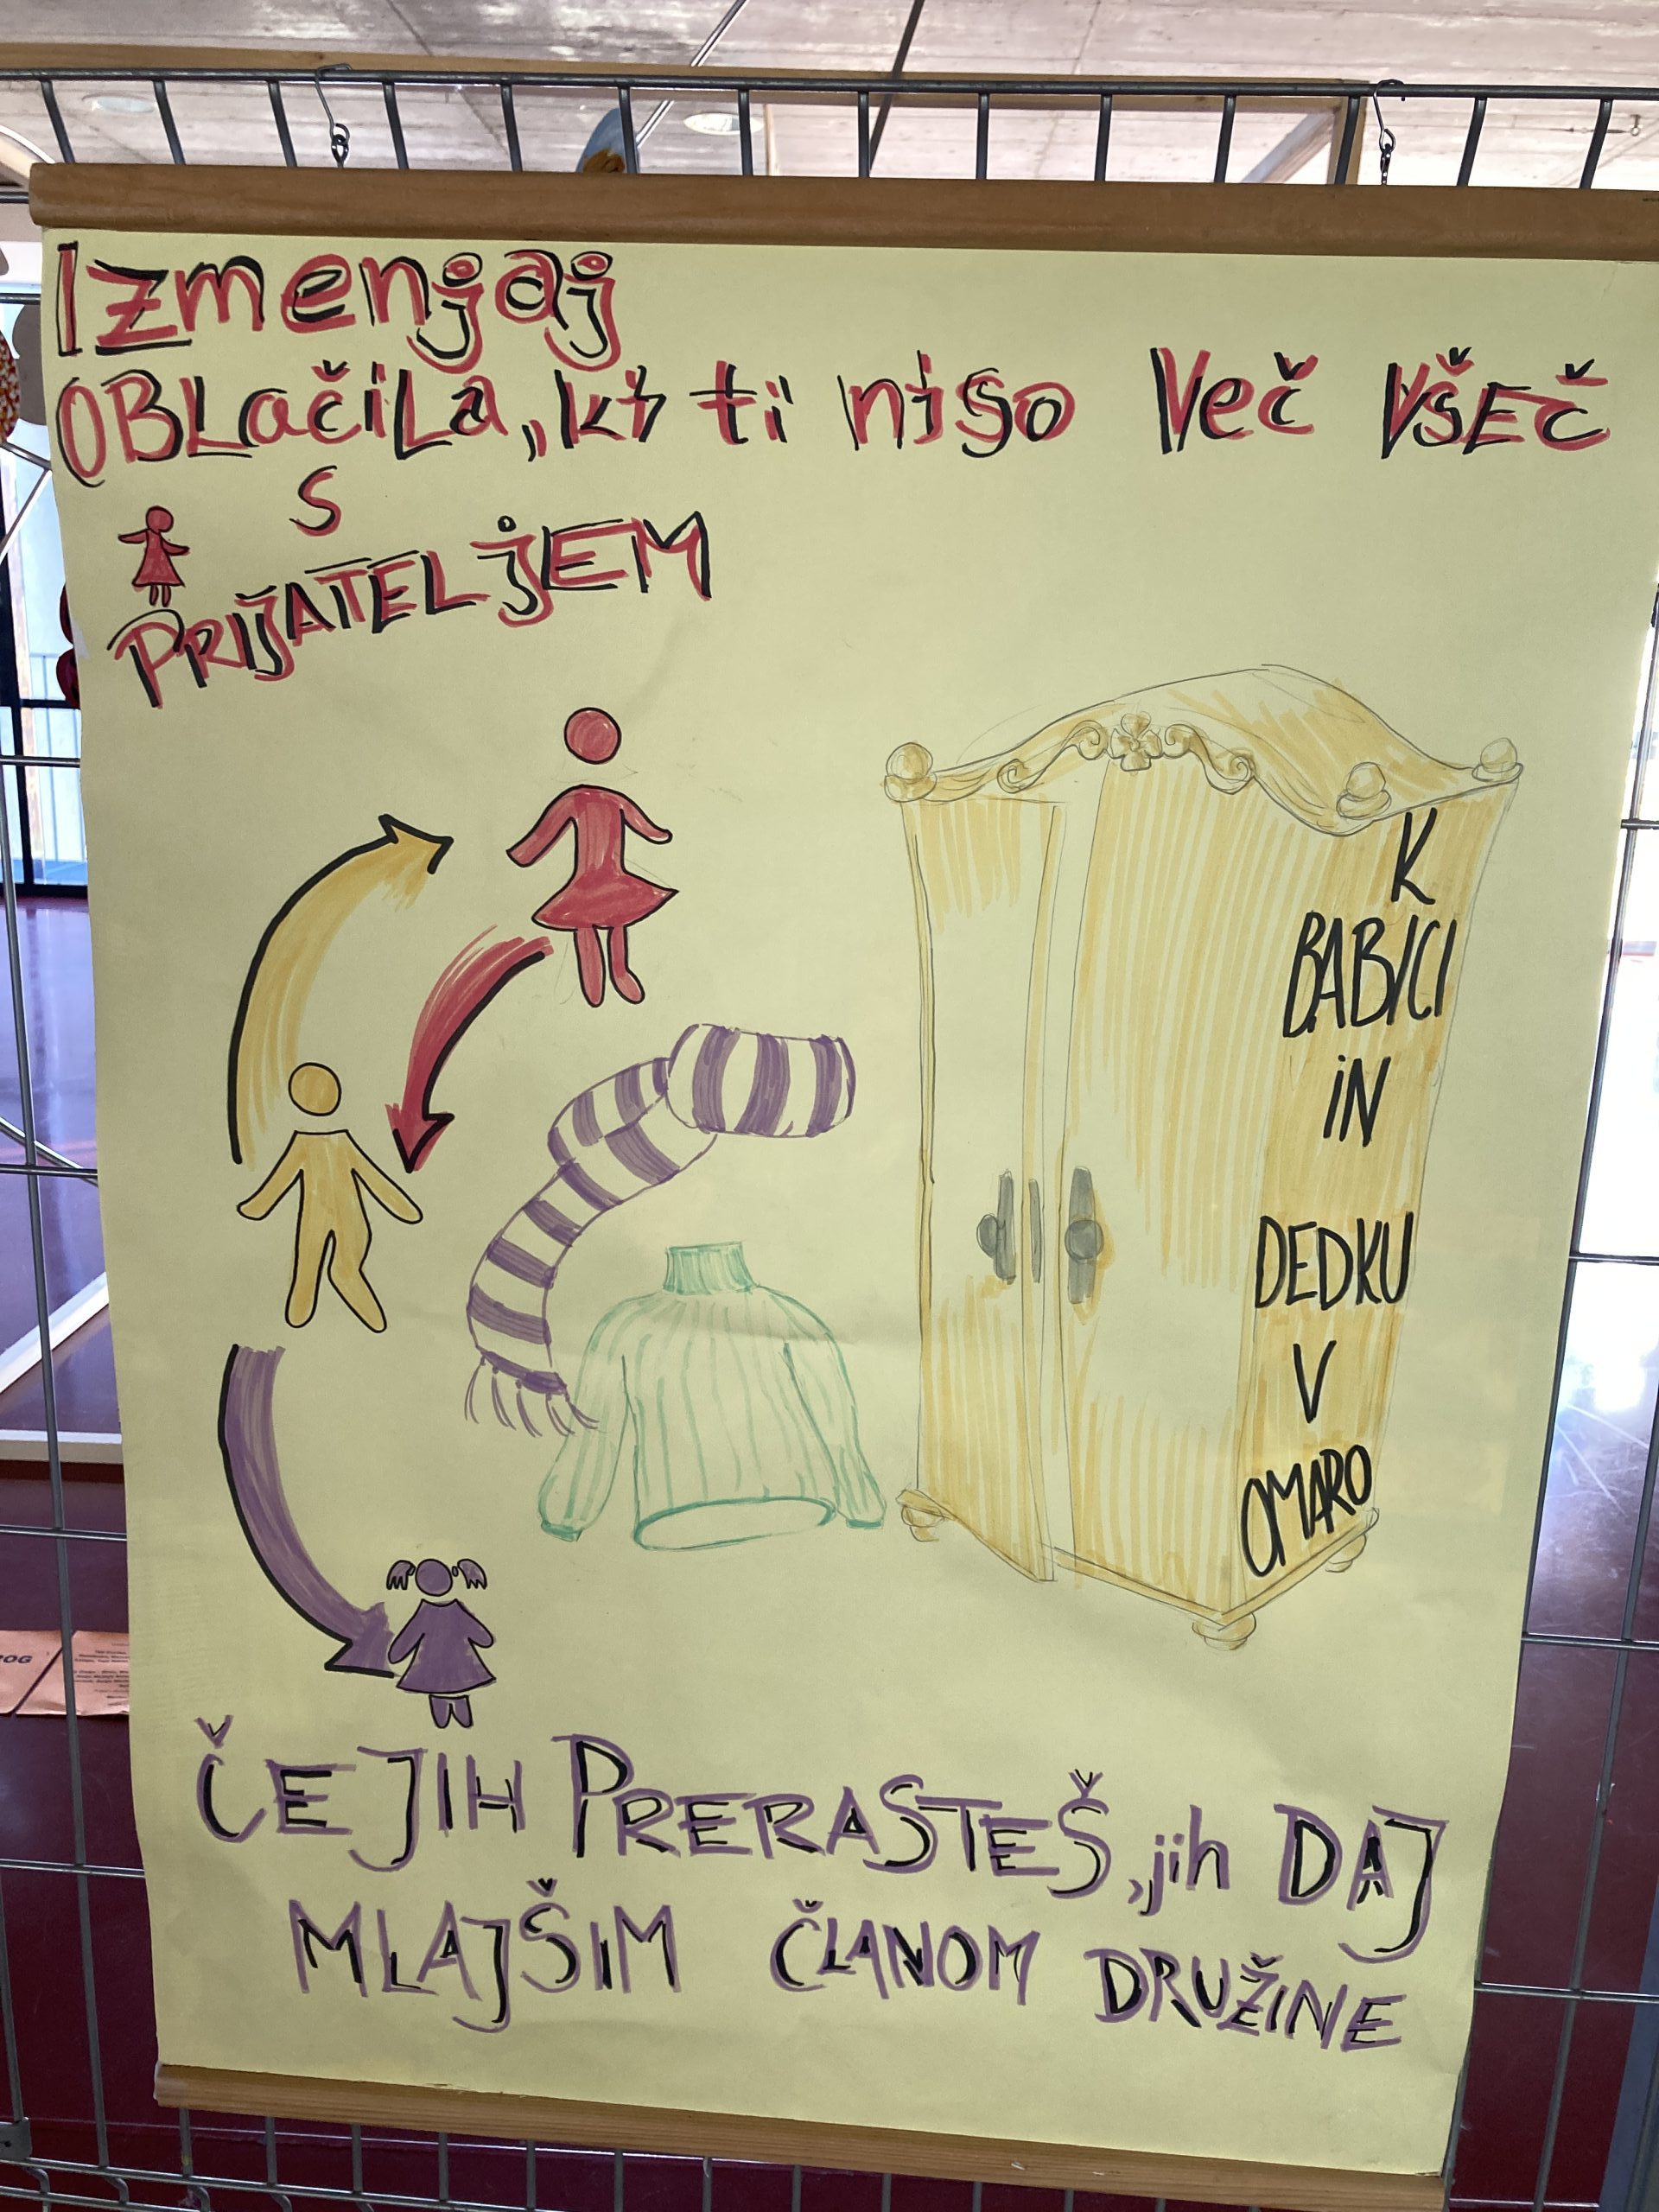 Izmenjaj
OBLačiLa, ki ti niso Več VŠEČ
S
PRIJATELJEM
K
BABICI
iN
DEDKU
V
OMARO
ČE JIH PRERASTEŠ, jih DAJ
MLAJŠIM ČLANOM DRUŽINE